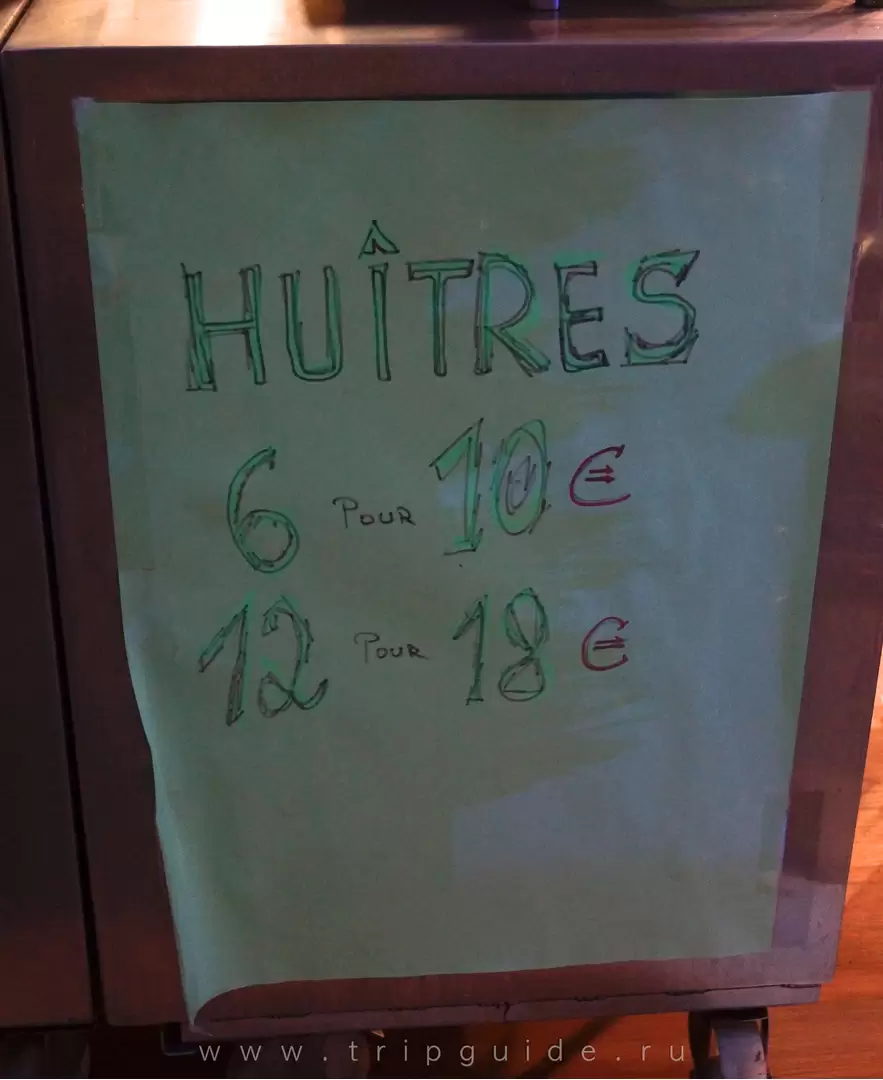 HUÎTRES
6 POUR 10 €
12 POUR 18 €
www.tripguide.ru